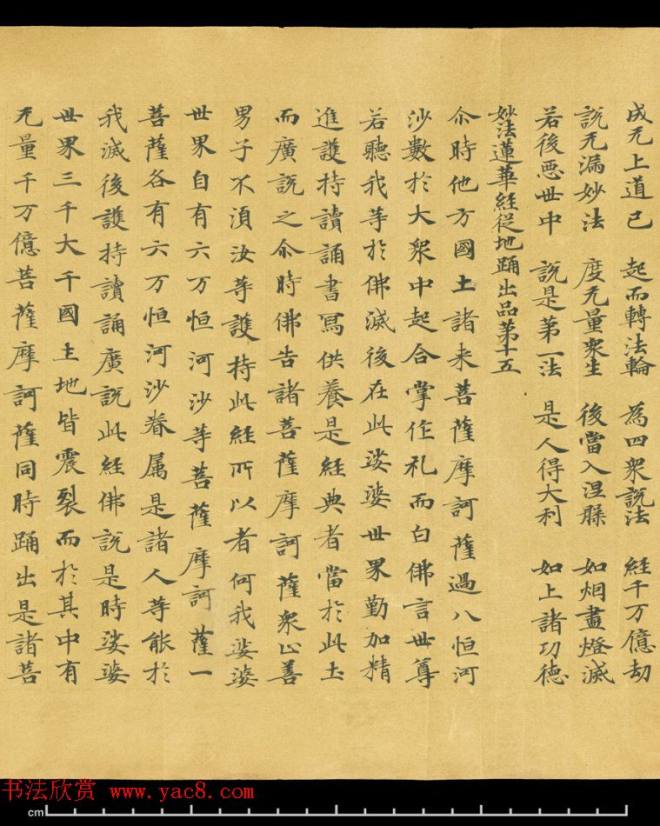 成无上道已 起而轉法輪 為四衆說法 經千万億劫
說无漏妙法 度无量衆生 後當入涅槃 如烟盡燈滅
若後惡世中 說是第一法 是人得大利 如上諸功德
妙法蓮華經從地踊出品第十五
尒時他方國土諸来菩薩摩訶薩過八恒河
沙數於大衆中起合掌作礼而白佛言世尊
若聽我等於佛滅後在此娑婆世界勤加精
進護持讀誦書寫供養是經典者當於此土
而廣說之尒時佛告諸菩薩摩訶薩衆止善
男子不湏汝等護持此經所以者何我娑婆
世界自有六万恒河沙等菩薩摩訶薩一
菩薩各有六万恒河沙眷属是諸人等能於
我滅後護持讀誦廣說此經佛說是時娑婆
世界三千大千國土地皆震裂而於其中有
无量千万億菩薩摩訶薩同時踊出是諸菩
书法欣赏 www.yac8.com
cm